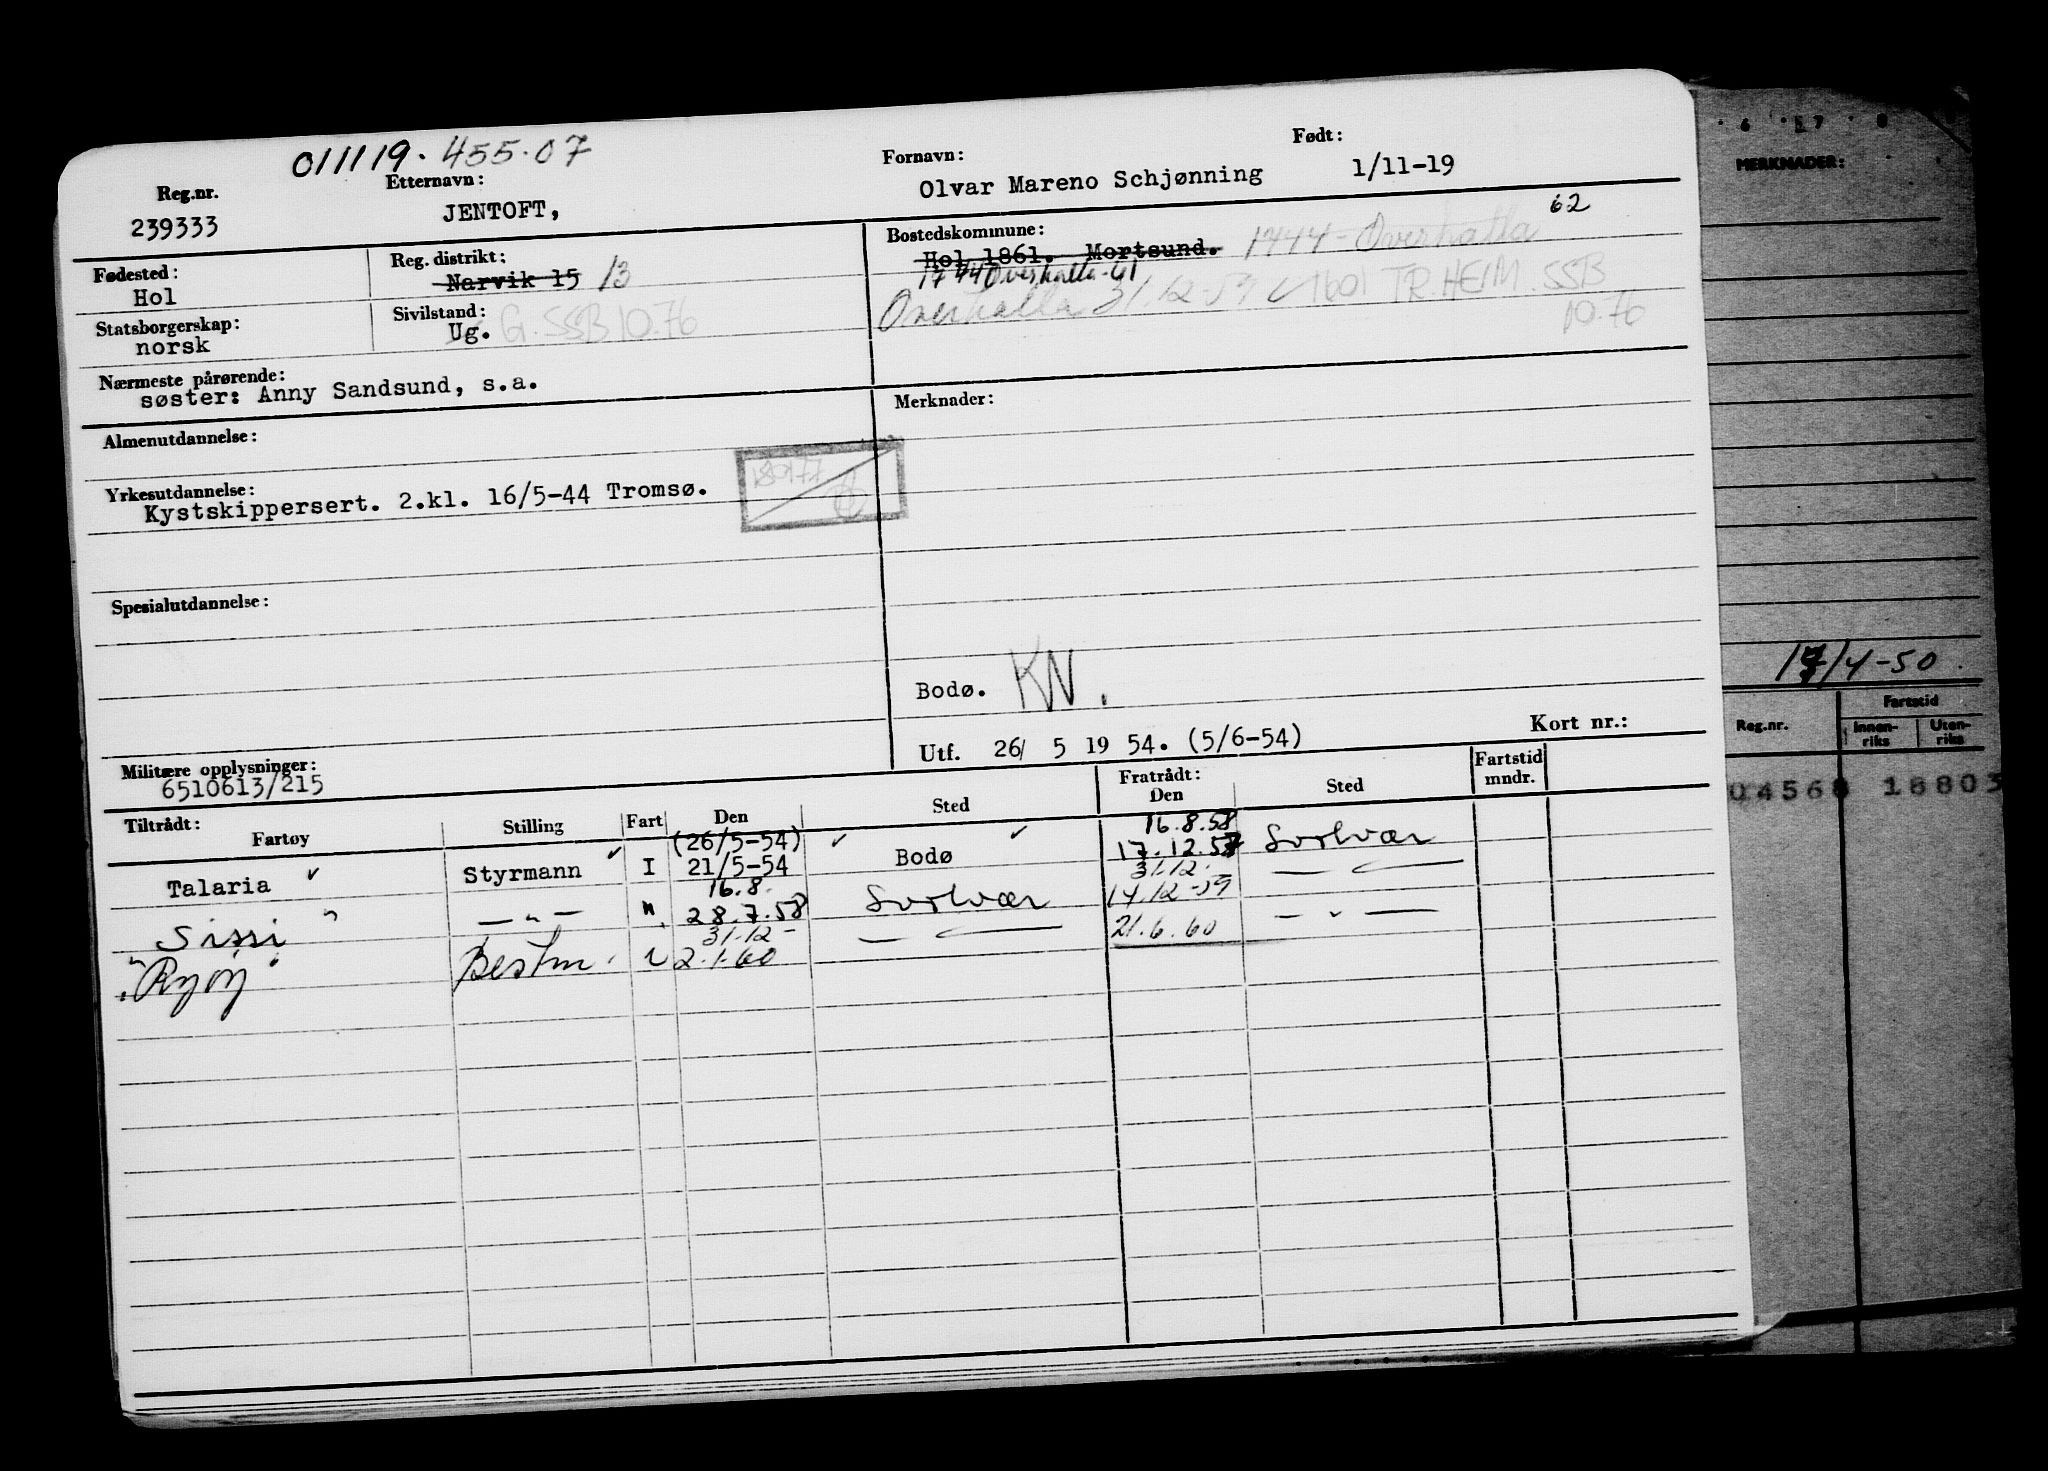 011119. 455.07
Reg.nr. Etternavn: Fornavn: Født:
239333 JENTOFT, Olvar Mareno Schjønning 1/11-19
62
Fødested: Reg. distrikt: Bostedskommune:
Hol Narvik 15 13 Hol 1861. Mortsund. 1744 - Overhalla
1744 Overhalla-61
Statsborgerskap: Sivilstand: Overhalla 31.12-59 1601 TR.HEIM. SSB
norsk Ug. G. SSB 10.76 10.76
Nærmeste pårørende:
søster: Anny Sandsund, s.a.
Almenutdannelse: Merknader:
Yrkesutdannelse:
Kystskippersert. 2.kl. 16/5-44 Tromsø.
Spesialutdannelse:
Bodø. KN.
Utf. 26/ 5 19 54. (5/6-54) Kort nr.:
Militære opplysninger:
6510613/215
Tiltrådt: Fratrådt: Fartstid mndr.
Fartøy Stilling Fart Den Sted Den Sted
(26/5-54) 16.8.58
Talaria Styrmann I 21/5-54 Bodø 17.12.57 Svolvær
16.8. 31.12.
Sissi — " — " 28.7.58 Svolvær 14.12-59 — " —
31.12-
"Ryøy" Bestm. 2.1.60 — " — 21.6.60 — " —
6 7 8
MERKNADER:
17/4-50.
Reg.nr. Fartstid
Innenriks Utenriks
04568 18803